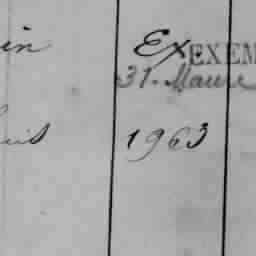 in Ex. EXEM
31. Maure
1963